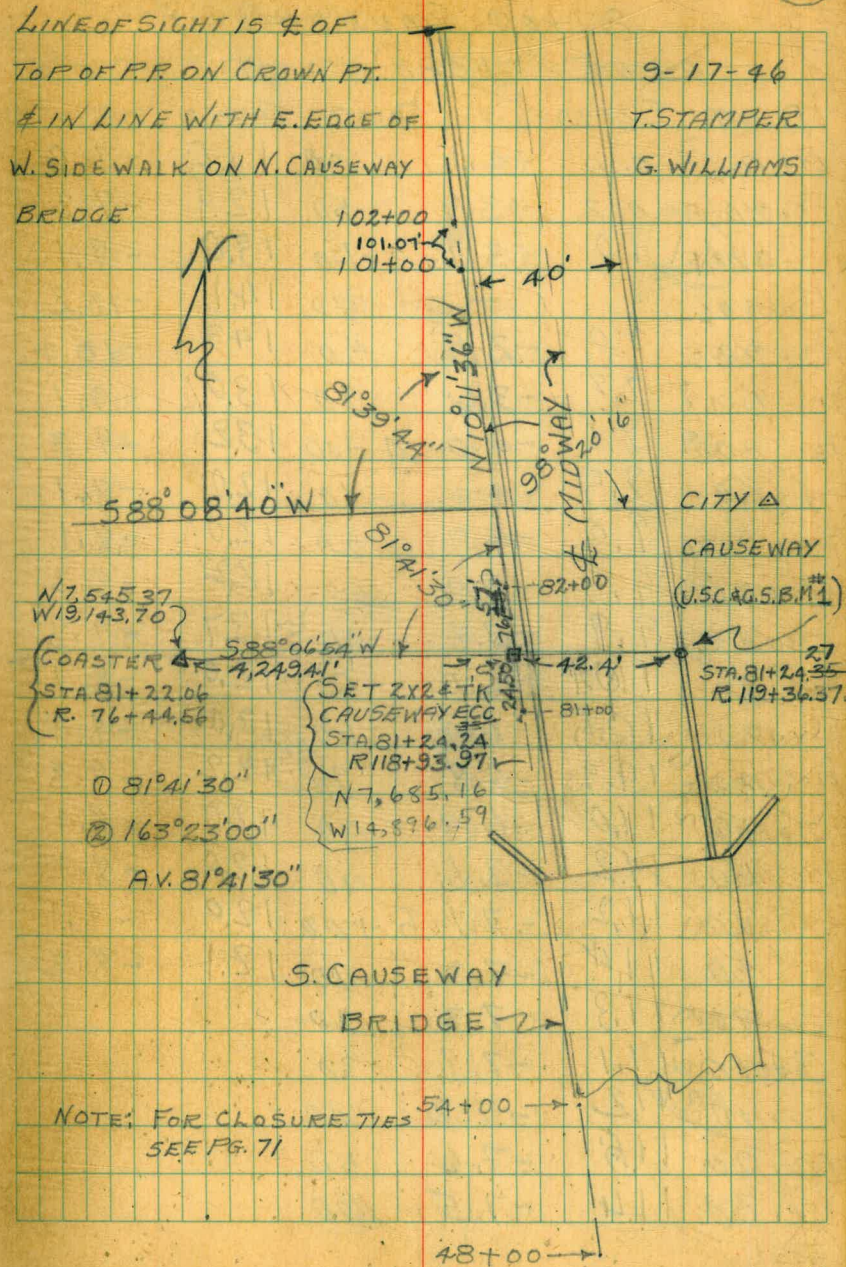 LINE OF SIGHT IS ℄ OF
TOP OF P.P. ON CROWN PT.
& IN LINE WITH E. EDGE OF
W. SIDEWALK ON N. CAUSEWAY
BRIDGE
9-17-46
T. STAMPER
G. WILLIAMS
N
102+00
101.07'
101+00
40'
N 10°11'36" W
81°39'44"
98° 20' 16"
℄ MIDWAY
S88°08'40"W
81°41'30"
CITY △
CAUSEWAY
(U.S.C.&G.S. B.M.#1)
82+00
N 7,545.37
W 19,143.70
S88°06'54"W
4,249.41'
COASTER △
STA. 81+22.06
R. 76+44.56
42.4'
27
STA. 81+24.35
R. 119+36.37
24.50
81+00
SET 2X2 & TK
CAUSEWAY ECC.
STA. 81+24.24
R 118+93.97
N 7,685.16
W 14,896.59
① 81°41'30"
② 163°23'00"
AV. 81°41'30"
S. CAUSEWAY
BRIDGE
54+00
NOTE: FOR CLOSURE TIES
SEE PG. 71
48+00